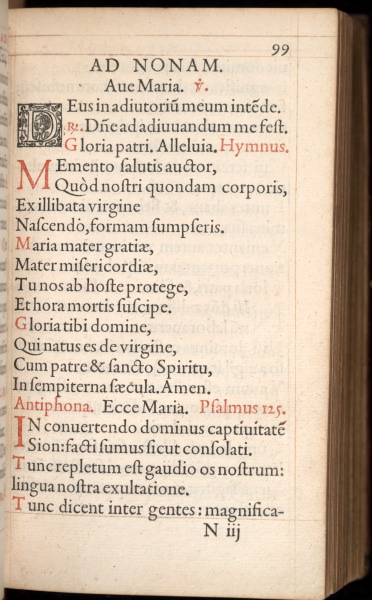 99
AD NONAM.
Aue Maria. ℣.
DEus in adiutoriũ meum intẽde.
℞. Dñe ad adiuuandum me fest.
Gloria patri. Alleluia. Hymnus.
MEmento salutis auctor,
Quòd nostri quondam corporis,
Ex illibata virgine
Nascendò, formam sumpseris.
Maria mater gratiæ,
Mater misericordiæ,
Tu nos ab hoste protege,
Et hora mortis suscipe.
Gloria tibi domine,
Qui natus es de virgine,
Cum patre & sancto Spiritu,
In sempiterna sæcula. Amen.
Antiphona. Ecce Maria. Psalmus 125.
IN conuertendo dominus captiuitatẽ
Sion: facti sumus sicut consolati.
Tunc repletum est gaudio os nostrum:
lingua nostra exultatione.
Tunc dicent inter gentes: magnifica-
N iij